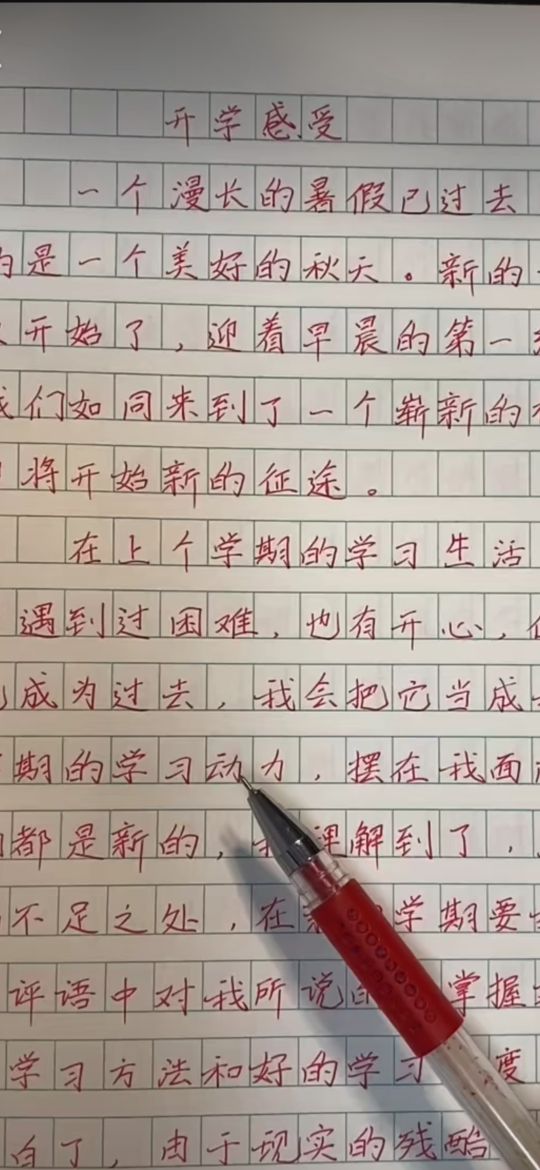 开学感受
一个漫长的暑假已过去
的是一个美好的秋天。新的
开始了，迎着早晨的第一
我们如同来到了一个崭新的
将开始新的征途。
在上个学期的学习生活
遇到过困难，也有开心，
成为过去，我会把它当成
期的学习动力，摆在我面
都是新的，我理解到了，
不足之处，在 学期要
评语中对我所说的 掌握
学习方法和好的学习 度
白了，由于现实的残酷